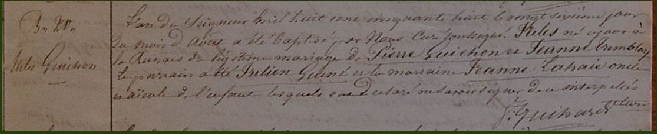 B. 20.
Jules Guichon
L'an du Seigneur mil huit cent cinquante huit le vingt sixième jour
du mois d'août a été baptisé par Nous Curé soussigné Jules né ce jour à
du légitime mariage de Pierre Guichon et Jeanne Tremblay
Le parrain a été Julien et la marraine Jeanne Lahaie oncle
et aïeule de l'enfant lesquels ont déclaré ne savoir signer de ce interpellés
J. Guihard